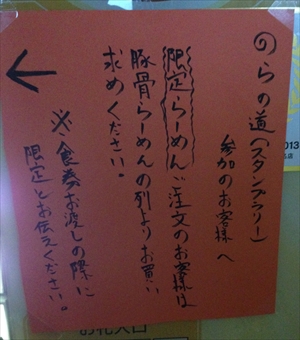 のらの道(スタンプラリー)
参加のお客様へ
限定らーめんご注文のお客様は
豚骨らーめんの列よりお買い
求めください。
※食券お渡しの際に
限定とお伝えください。
2013
お札入口